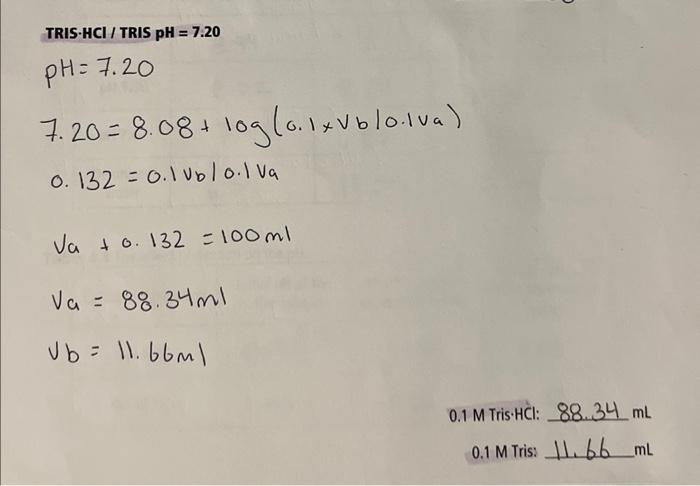 TRIS·HCl / TRIS pH = 7.20
pH = 7.20
7.20 = 8.08 + log(0.1 x Vb/0.1Va)
0.132 = 0.1Vb/0.1Va
Va + 0.132 = 100ml
Va = 88.34ml
Vb = 11.66ml
0.1 M Tris·HCl: 88.34 mL
0.1 M Tris: 11.66 mL